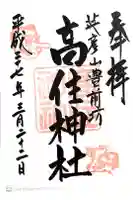 奉拝
北岳山豊前坊
高住神社
平成二七年三月二十二日